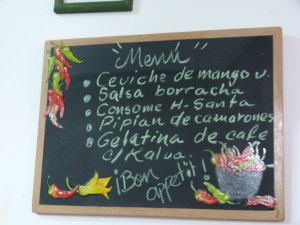 "Menú"
Ceviche de mango v.
Salsa borracha
Consome H-Santa
Pipian de camarones
Gelatina de cafe
c/ Kalua
¡Bon
appetit!